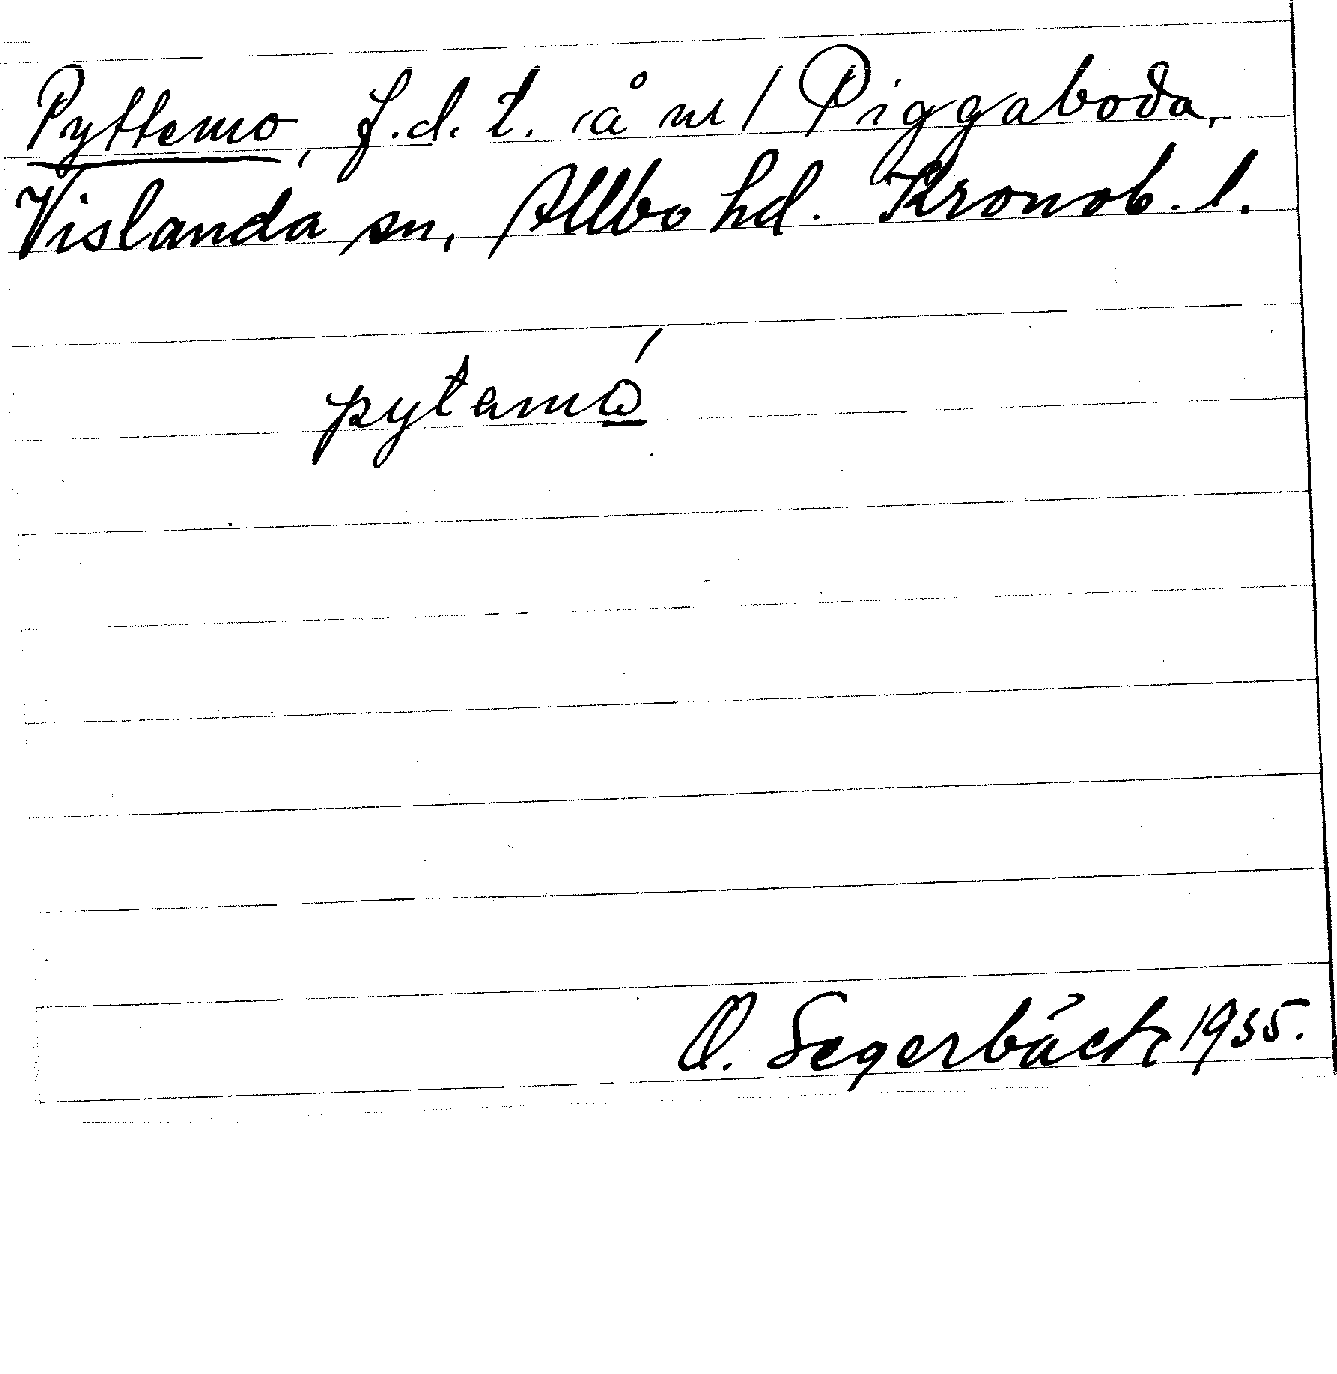 Pyttemo, f.d. t. å nr 1 Piggaboda,
Vislanda sn, Allbo hd. Kronob. l.
pytamó
O. Segerbäck 1935.